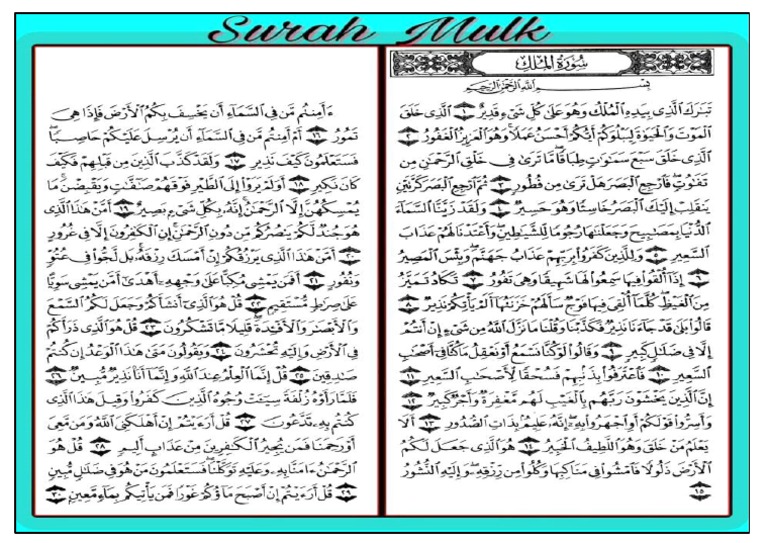 Surah Mulk
سُورَةُ المُلْكِ
بِسْمِ اللَّهِ الرَّحْمَٰنِ الرَّحِيمِ
تَبَارَكَ الَّذِي بِيَدِهِ الْمُلْكُ وَهُوَ عَلَىٰ كُلِّ شَيْءٍ قَدِيرٌ ١ الَّذِي خَلَقَ
الْمَوْتَ وَالْحَيَاةَ لِيَبْلُوَكُمْ أَيُّكُمْ أَحْسَنُ عَمَلًا وَهُوَ الْعَزِيزُ الْغَفُورُ ٢
الَّذِي خَلَقَ سَبْعَ سَمَاوَاتٍ طِبَاقًا مَّا تَرَىٰ فِي خَلْقِ الرَّحْمَٰنِ مِن
تَفَاوُتٍ فَارْجِعِ الْبَصَرَ هَلْ تَرَىٰ مِن فُطُورٍ ٣ ثُمَّ ارْجِعِ الْبَصَرَ كَرَّتَيْنِ
يَنقَلِبْ إِلَيْكَ الْبَصَرُ خَاسِئًا وَهُوَ حَسِيرٌ ٤ وَلَقَدْ زَيَّنَّا السَّمَاءَ
الدُّنْيَا بِمَصَابِيحَ وَجَعَلْنَاهَا رُجُومًا لِّلشَّيَاطِينِ وَأَعْتَدْنَا لَهُمْ عَذَابَ
السَّعِيرِ ٥ وَلِلَّذِينَ كَفَرُوا بِرَبِّهِمْ عَذَابُ جَهَنَّمَ وَبِئْسَ الْمَصِيرُ
٦ إِذَا أُلْقُوا فِيهَا سَمِعُوا لَهَا شَهِيقًا وَهِيَ تَفُورُ ٧ تَكَادُ تَمَيَّزُ
مِنَ الْغَيْظِ كُلَّمَا أُلْقِيَ فِيهَا فَوْجٌ سَأَلَهُمْ خَزَنَتُهَا أَلَمْ يَأْتِكُمْ نَذِيرٌ ٨
قَالُوا بَلَىٰ قَدْ جَاءَنَا نَذِيرٌ فَكَذَّبْنَا وَقُلْنَا مَا نَزَّلَ اللَّهُ مِن شَيْءٍ إِنْ أَنتُمْ
إِلَّا فِي ضَلَالٍ كَبِيرٍ ٩ وَقَالُوا لَوْ كُنَّا نَسْمَعُ أَوْ نَعْقِلُ مَا كُنَّا فِي أَصْحَابِ
السَّعِيرِ ١٠ فَاعْتَرَفُوا بِذَنبِهِمْ فَسُحْقًا لِّأَصْحَابِ السَّعِيرِ ١١
إِنَّ الَّذِينَ يَخْشَوْنَ رَبَّهُم بِالْغَيْبِ لَهُم مَّغْفِرَةٌ وَأَجْرٌ كَبِيرٌ ١٢
وَأَسِرُّوا قَوْلَكُمْ أَوِ اجْهَرُوا بِهِ إِنَّهُ عَلِيمٌ بِذَاتِ الصُّدُورِ ١٣ أَلَا
يَعْلَمُ مَنْ خَلَقَ وَهُوَ اللَّطِيفُ الْخَبِيرُ ١٤ هُوَ الَّذِي جَعَلَ لَكُمُ
الْأَرْضَ ذَلُولًا فَامْشُوا فِي مَنَاكِبِهَا وَكُلُوا مِن رِّزْقِهِ وَإِلَيْهِ النُّشُورُ
١٥
ءَأَمِنتُم مَّن فِي السَّمَاءِ أَن يَخْسِفَ بِكُمُ الْأَرْضَ فَإِذَا هِيَ
تَمُورُ ١٦ أَمْ أَمِنتُم مَّن فِي السَّمَاءِ أَن يُرْسِلَ عَلَيْكُمْ حَاصِبًا
فَسَتَعْلَمُونَ كَيْفَ نَذِيرِ ١٧ وَلَقَدْ كَذَّبَ الَّذِينَ مِن قَبْلِهِمْ فَكَيْفَ
كَانَ نَكِيرِ ١٨ أَوَلَمْ يَرَوْا إِلَى الطَّيْرِ فَوْقَهُمْ صَافَّاتٍ وَيَقْبِضْنَ مَا
يُمْسِكُهُنَّ إِلَّا الرَّحْمَٰنُ إِنَّهُ بِكُلِّ شَيْءٍ بَصِيرٌ ١٩ أَمَّنْ هَٰذَا الَّذِي
هُوَ جُندٌ لَّكُمْ يَنصُرُكُم مِّن دُونِ الرَّحْمَٰنِ إِنِ الْكَافِرُونَ إِلَّا فِي غُرُورٍ
٢٠ أَمَّنْ هَٰذَا الَّذِي يَرْزُقُكُمْ إِنْ أَمْسَكَ رِزْقَهُ بَل لَّجُّوا فِي عُتُوٍّ
وَنُفُورٍ ٢١ أَفَمَن يَمْشِي مُكِبًّا عَلَىٰ وَجْهِهِ أَهْدَىٰ أَمَّن يَمْشِي سَوِيًّا
عَلَىٰ صِرَاطٍ مُّسْتَقِيمٍ ٢٢ قُلْ هُوَ الَّذِي أَنشَأَكُمْ وَجَعَلَ لَكُمُ السَّمْعَ
وَالْأَبْصَارَ وَالْأَفْئِدَةَ قَلِيلًا مَّا تَشْكُرُونَ ٢٣ قُلْ هُوَ الَّذِي ذَرَأَكُمْ
فِي الْأَرْضِ وَإِلَيْهِ تُحْشَرُونَ ٢٤ وَيَقُولُونَ مَتَىٰ هَٰذَا الْوَعْدُ إِن كُنتُمْ
صَادِقِينَ ٢٥ قُلْ إِنَّمَا الْعِلْمُ عِندَ اللَّهِ وَإِنَّمَا أَنَا نَذِيرٌ مُّبِينٌ ٢٦
فَلَمَّا رَأَوْهُ زُلْفَةً سِيئَتْ وُجُوهُ الَّذِينَ كَفَرُوا وَقِيلَ هَٰذَا الَّذِي
كُنتُم بِهِ تَدَّعُونَ ٢٧ قُلْ أَرَأَيْتُمْ إِنْ أَهْلَكَنِيَ اللَّهُ وَمَن مَّعِيَ
أَوْ رَحِمَنَا فَمَن يُجِيرُ الْكَافِرِينَ مِنْ عَذَابٍ أَلِيمٍ ٢٨ قُلْ هُوَ
الرَّحْمَٰنُ ءَامَنَّا بِهِ وَعَلَيْهِ تَوَكَّلْنَا فَسَتَعْلَمُونَ مَنْ هُوَ فِي ضَلَالٍ مُّبِينٍ
٢٩ قُلْ أَرَأَيْتُمْ إِنْ أَصْبَحَ مَاؤُكُمْ غَوْرًا فَمَن يَأْتِيكُم بِمَاءٍ مَّعِينٍ ٣٠